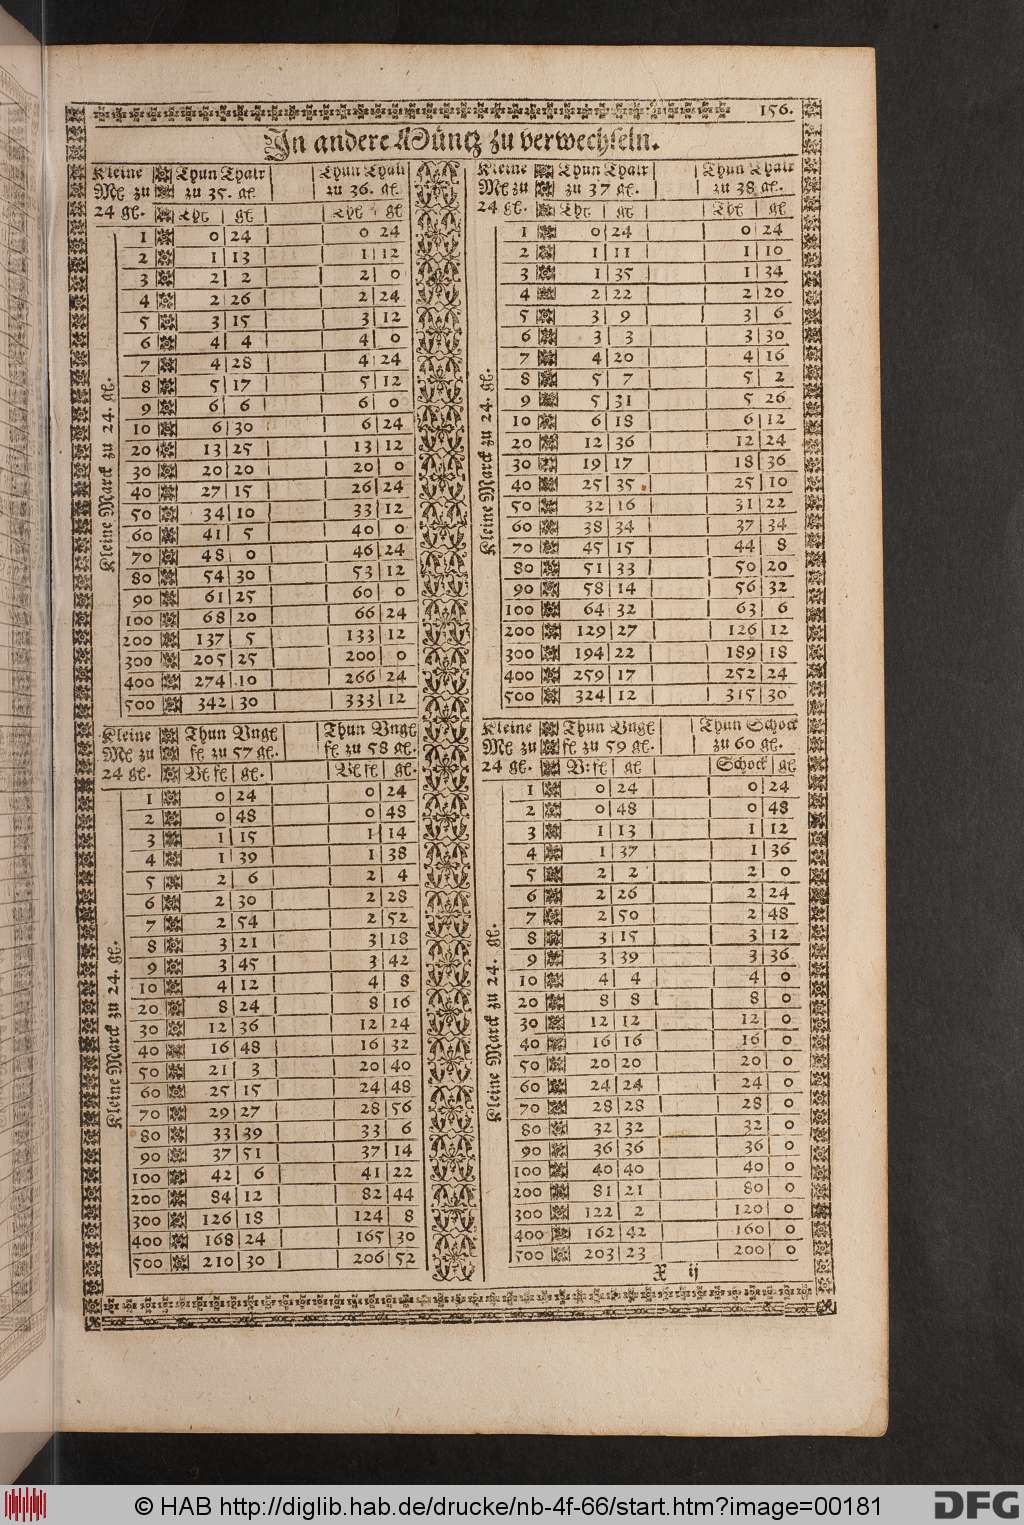 156.
In andere Müntz zu verwechseln.
Kleine Thun Thalr Thun Thalr
Mk zu zu 35. gl. zu 36. gl.
24 gl. Thl gl Thl gl
Kleine Marck zu 24. gl.
1 0 24 0 24
2 1 13 1 12
3 2 2 2 0
4 2 26 2 24
5 3 15 3 12
6 4 4 4 0
7 4 28 4 24
8 5 17 5 12
9 6 6 6 0
10 6 30 6 24
20 13 25 13 12
30 20 20 20 0
40 27 15 26 24
50 34 10 33 12
60 41 5 40 0
70 48 0 46 24
80 54 30 53 12
90 61 25 60 0
100 68 20 66 24
200 137 5 133 12
300 205 25 200 0
400 274 10 266 24
500 342 30 333 12
Kleine Thun Thalr Thun Thalr
Mk zu zu 37 gl. zu 38 gl.
24 gl. Thl gl Thl gl
Kleine Marck zu 24. gl.
1 0 24 0 24
2 1 11 1 10
3 1 35 1 34
4 2 22 2 20
5 3 9 3 6
6 3 3 3 30
7 4 20 4 16
8 5 7 5 2
9 5 31 5 26
10 6 18 6 12
20 12 36 12 24
30 19 17 18 36
40 25 35 25 10
50 32 16 31 22
60 38 34 37 34
70 45 15 44 8
80 51 33 50 20
90 58 14 56 32
100 64 32 63 6
200 129 27 126 12
300 194 22 189 18
400 259 17 252 24
500 324 12 315 30
Kleine Thun Vngl Thun Vngl
Mk zu fl zu 57 gl. fl zu 58 gl.
24 gl. Vl fl gl. Vl fl gl.
Kleine Marck zu 24. gl.
1 0 24 0 24
2 0 48 0 48
3 1 15 1 14
4 1 39 1 38
5 2 6 2 4
6 2 30 2 28
7 2 54 2 52
8 3 21 3 18
9 3 45 3 42
10 4 12 4 8
20 8 24 8 16
30 12 36 12 24
40 16 48 16 32
50 21 3 20 40
60 25 15 24 48
70 29 27 28 56
80 33 39 33 6
90 37 51 37 14
100 42 6 41 22
200 84 12 82 44
300 126 18 124 8
400 168 24 165 30
500 210 30 206 52
Kleine Thun Vngl Thun Schock
Mk zu fl zu 59 gl. zu 60 gl.
24 gl. V: fl gl Schock gl
Kleine Marck zu 24. gl.
1 0 24 0 24
2 0 48 0 48
3 1 13 1 12
4 1 37 1 36
5 2 2 2 0
6 2 26 2 24
7 2 50 2 48
8 3 15 3 12
9 3 39 3 36
10 4 4 4 0
20 8 8 8 0
30 12 12 12 0
40 16 16 16 0
50 20 20 20 0
60 24 24 24 0
70 28 28 28 0
80 32 32 32 0
90 36 36 36 0
100 40 40 40 0
200 81 21 80 0
300 122 2 120 0
400 162 42 160 0
500 203 23 200 0
X ij
© HAB http://diglib.hab.de/drucke/nb-4f-66/start.htm?image=00181
DFG